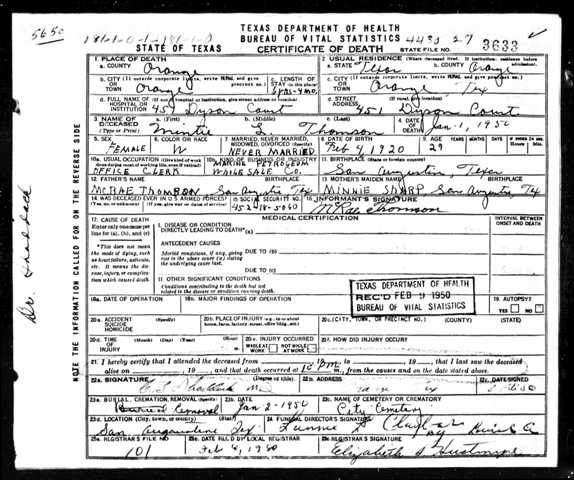 5650
TEXAS DEPARTMENT OF HEALTH
BUREAU OF VITAL STATISTICS
STATE OF TEXAS CERTIFICATE OF DEATH STATE FILE NO. 3633
1. PLACE OF DEATH 2. USUAL RESIDENCE (Where deceased lived.
a. COUNTY Orange a. STATE Texas b. COUNTY Orange
b. CITY (If outside corporate limits, write RURAL and give precinct no.) OR TOWN Orange c. LENGTH OF STAY
c. CITY (If outside corporate limits, write RURAL and give precinct no.) OR TOWN Orange Tex
d. FULL NAME OF HOSPITAL OR INSTITUTION 451 Dyson Court
d. STREET ADDRESS 451 Dyson Court
3. NAME OF DECEASED (Type or Print) a. (First) Mintie b. (Middle) L c. (Last) Thomson 4. DATE OF DEATH Jan-1, 1950
5. SEX FEMALE 6. COLOR OR RACE W 7. MARRIED, NEVER MARRIED, WIDOWED, DIVORCED (Specify) NEVER MARRIED 8. DATE OF BIRTH Feb 4 1920 9. AGE YEARS 29 MONTHS DAYS
10a. USUAL OCCUPATION OFFICE CLERK 10b. KIND OF BUSINESS OR INDUSTRY PETROLEUM WHOLESALE CO. 11. BIRTHPLACE (State or foreign country) San Augustine, Texas
12. FATHER'S NAME BIRTHPLACE MCRAE THOMSON San Augustine Tex
13. MOTHER'S MAIDEN NAME BIRTHPLACE MINNIE SHARP San Augustine, Tex
14. WAS DECEASED EVER IN U.S. ARMED FORCES? 15. SOCIAL SECURITY NO. 16. INFORMANT'S SIGNATURE McRae Thomson
MEDICAL CERTIFICATION
INTERVAL BETWEEN ONSET AND DEATH
17. CAUSE OF DEATH
Enter only one cause per line for (a), (b), and (c)
I. DISEASE OR CONDITION DIRECTLY LEADING TO DEATH*(a)
*This does not mean the mode of dying, such as heart failure, asthenia, etc. It means the disease, injury, or complication which caused death.
ANTECEDENT CAUSES
Morbid conditions, if any, giving rise to the above cause (a) stating the underlying cause last.
DUE TO (b)
DUE TO (c)
II. OTHER SIGNIFICANT CONDITIONS
Conditions contributing to the death but not related to the disease or condition causing death.
TEXAS DEPARTMENT OF HEALTH
REC'D FEB 9 1950
BUREAU OF VITAL STATISTICS
18a. DATE OF OPERATION 18b. MAJOR FINDINGS OF OPERATION 19. AUTOPSY? YES NO
20a. ACCIDENT SUICIDE HOMICIDE (Specify) 20b. PLACE OF INJURY 20c. (CITY, TOWN, OR PRECINCT NO.) (COUNTY) (STATE)
20d. TIME OF INJURY (Month) (Day) (Year) (Hour) 20e. INJURY OCCURRED WHILE AT WORK NOT WHILE AT WORK 20f. HOW DID INJURY OCCUR?
21. I hereby certify that I attended the deceased from 19 , to 19 , that I last saw the deceased
alive on 19 , and that death occurred at m., from the causes and on the date stated above.
22a. SIGNATURE (Degree or title) 22b. ADDRESS 22c. DATE SIGNED
23a. BURIAL, CREMATION, REMOVAL Removal 23b. DATE Jan 2-1950 23c. NAME OF CEMETERY OR CREMATORY City Cemetery
23d. LOCATION (City, town, or county) (State) San Augustine Tex 24. FUNERAL DIRECTOR'S SIGNATURE
25a. REGISTRAR'S FILE NO. 101 25b. DATE REC'D BY LOCAL REGISTRAR 25c. REGISTRAR'S SIGNATURE
NOTE THE INFORMATION CALLED FOR ON THE REVERSE SIDE